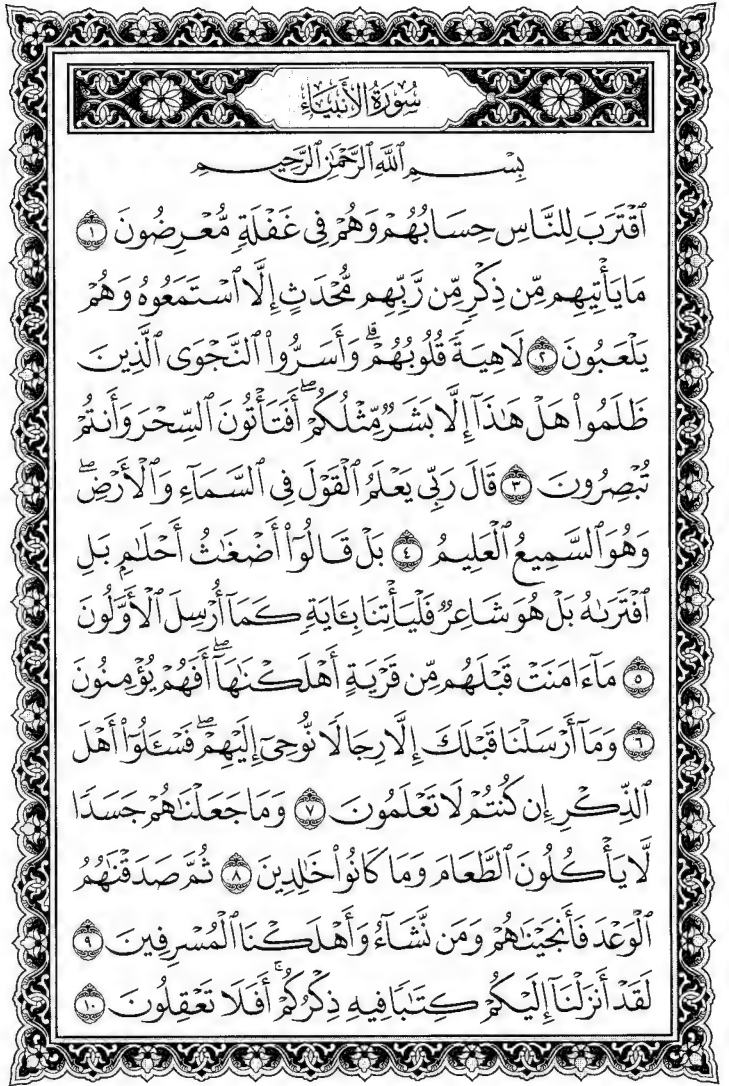 سُورَةُ الأَنبِيَاءِ
بِسْمِ ٱللَّهِ ٱلرَّحْمَٰنِ ٱلرَّحِيمِ
ٱقْتَرَبَ لِلنَّاسِ حِسَابُهُمْ وَهُمْ فِى غَفْلَةٍ مُّعْرِضُونَ ١
مَا يَأْتِيهِم مِّن ذِكْرٍ مِّن رَّبِّهِم مُّحْدَثٍ إِلَّا ٱسْتَمَعُوهُ وَهُمْ
يَلْعَبُونَ ٢ لَاهِيَةً قُلُوبُهُمْ ۗ وَأَسَرُّوا۟ ٱلنَّجْوَى ٱلَّذِينَ
ظَلَمُوا۟ هَلْ هَٰذَآ إِلَّا بَشَرٌ مِّثْلُكُمْ ۖ أَفَتَأْتُونَ ٱلسِّحْرَ وَأَنتُمْ
تُبْصِرُونَ ٣ قَالَ رَبِّى يَعْلَمُ ٱلْقَوْلَ فِى ٱلسَّمَآءِ وَٱلْأَرْضِ ۖ
وَهُوَ ٱلسَّمِيعُ ٱلْعَلِيمُ ٤ بَلْ قَالُوٓا۟ أَضْغَٰثُ أَحْلَٰمٍۭ بَلِ
ٱفْتَرَىٰهُ بَلْ هُوَ شَاعِرٌ فَلْيَأْتِنَا بِـَٔايَةٍ كَمَآ أُرْسِلَ ٱلْأَوَّلُونَ
٥ مَآ ءَامَنَتْ قَبْلَهُم مِّن قَرْيَةٍ أَهْلَكْنَٰهَآ ۖ أَفَهُمْ يُؤْمِنُونَ
٦ وَمَآ أَرْسَلْنَا قَبْلَكَ إِلَّا رِجَالًا نُّوحِىٓ إِلَيْهِمْ ۖ فَسْـَٔلُوٓا۟ أَهْلَ
ٱلذِّكْرِ إِن كُنتُمْ لَا تَعْلَمُونَ ٧ وَمَا جَعَلْنَٰهُمْ جَسَدًا
لَّا يَأْكُلُونَ ٱلطَّعَامَ وَمَا كَانُوا۟ خَٰلِدِينَ ٨ ثُمَّ صَدَقْنَٰهُمُ
ٱلْوَعْدَ فَأَنجَيْنَٰهُمْ وَمَن نَّشَآءُ وَأَهْلَكْنَا ٱلْمُسْرِفِينَ ٩
لَقَدْ أَنزَلْنَآ إِلَيْكُمْ كِتَٰبًا فِيهِ ذِكْرُكُمْ ۖ أَفَلَا تَعْقِلُونَ ١٠